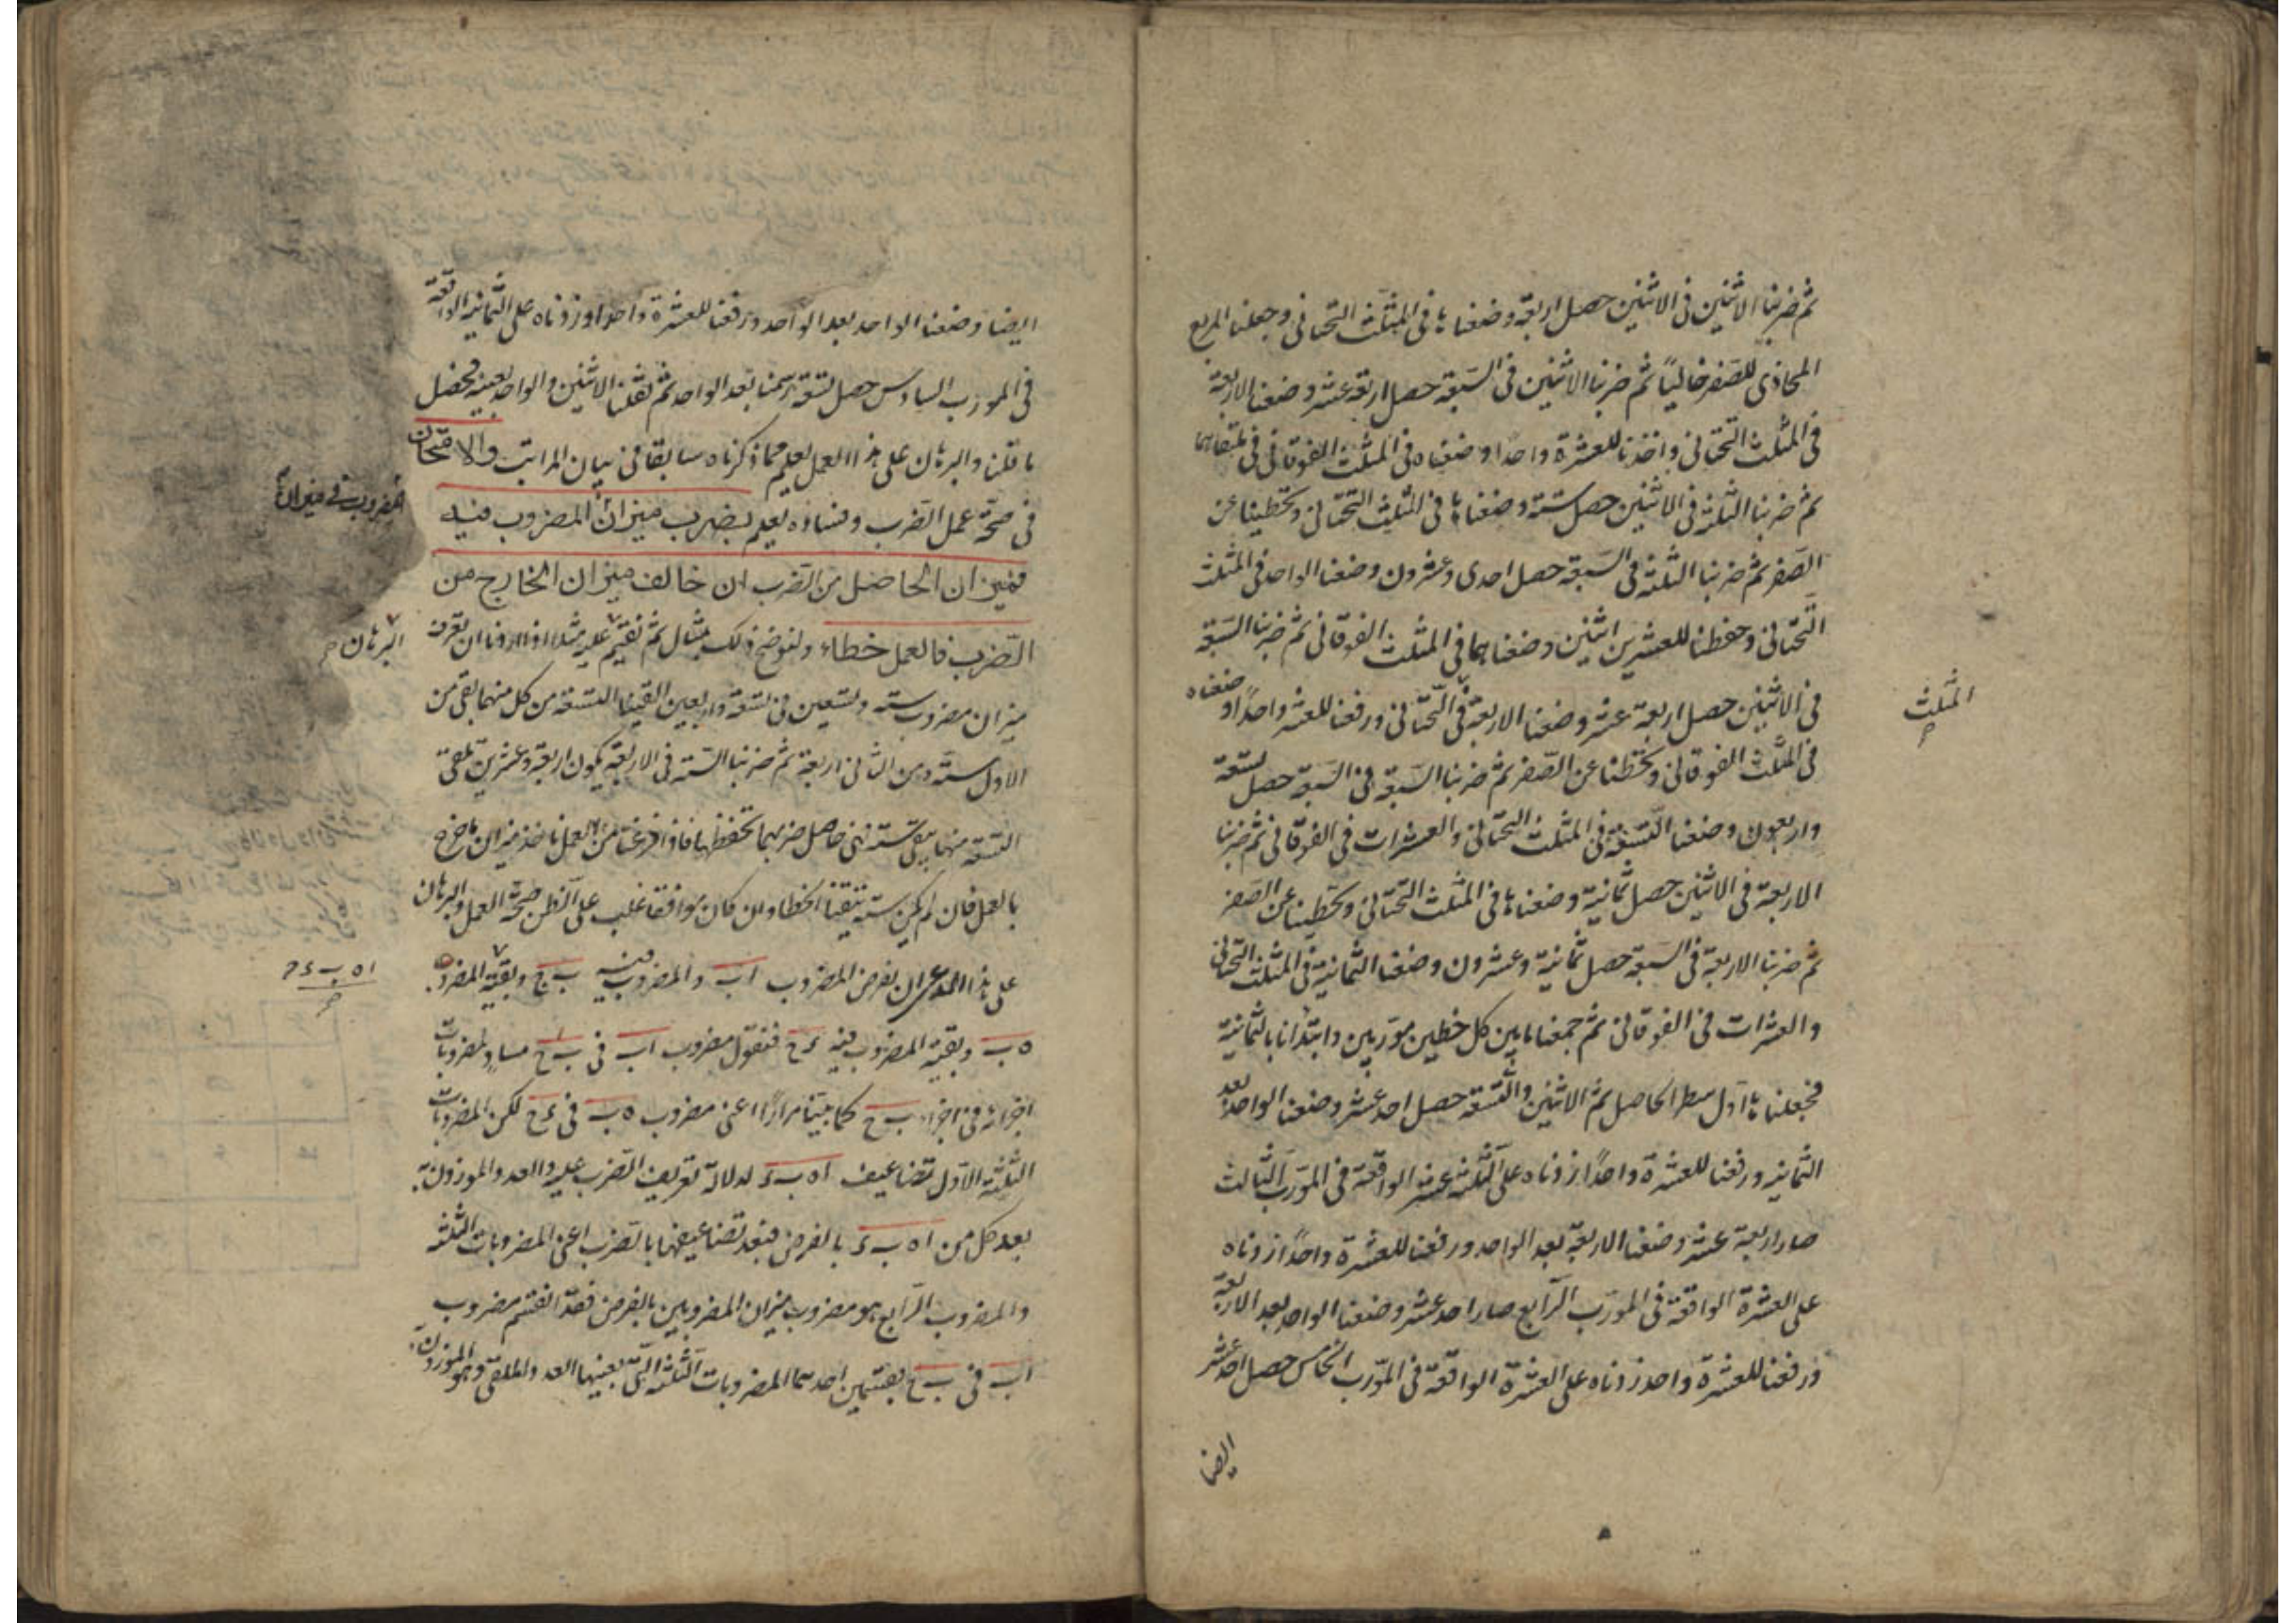 ثم ضربنا الاثنين فى الاثنين حصل اربعة وضعناها فى المثلث التحتانى وجعلنا المربع
المحاذى للصفر خالياً ثم ضربنا الاثنين فى السبعة حصل اربعة عشر وضعنا الاربعة
فى المثلث التحتانى واخذنا للعشرة واحدا وضعناه فى المثلث الفوقانى فى ملتقاهما
ثم ضربنا الثلثة فى الاثنين حصل ستة وضعناها فى المثلث التحتانى وتخطينا عن
الصفر ثم ضربنا الثلثة فى السبعة حصل احدى وعشرون وضعنا الواحد فى المثلث
التحتانى وحفظنا للعشرين اثنين وضعناهما فى المثلث الفوقانى ثم ضربنا السبعة
فى الاثنين حصل اربعة عشر وضعنا الاربعة فى التحتانى ورفعنا للعشر واحداً وضعناه
المثلث
فى المثلث الفوقانى وتخطنا عن الصفر ثم ضربنا السبعة فى السبعة حصل تسعة
واربعون وضعنا التسعة فى المثلث التحتانى والعشرات فى الفوقانى ثم ضربنا
الاربعة فى الاثنين حصل ثمانية وضعناها فى المثلث التحتانى وتخطينا عن الصفر
ثم ضربنا الاربعة فى السبعة حصل ثمانية وعشرون وضعنا الثمانية فى المثلث التحتانى
والعشرات فى الفوقانى ثم جمعنا ما بين كل خطين موربين وابتدأنا بالثمانية
فجعلناها اول سطر الحاصل ثم الاثنين والتسعة حصل احد عشر وضعنا الواحد بعد
الثمانية ورفعنا للعشرة واحداً زدناه على الثلثة عشر الواقعة فى المورب الثالث
صار اربعة عشر وضعنا الاربعة بعد الواحد ورفعنا للعشرة واحداً زدناه
على العشرة الواقعة فى المورب الرابع صار احد عشر وضعنا الواحد بعد الاربعة
ورفعنا للعشرة واحد زدناه على العشرة الواقعة فى المورب الخامس حصل احد عشر
ايضا
ايضا وضعنا الواحد بعد الواحد ورفعنا للعشرة واحدا وزدناه على الثمانية الواقعة
فى المورب السادس حصل تسعة رسمنا بعد الواحد ثم نقلنا الاثنين والواحد بعينه فحصل
ما قلنا والبرهان على هذا العمل يعلم مما ذكرناه سابقا فى بيان المراتب والامتحان
فى صحة عمل الضرب وفساده يعلم بضرب ميزان المضروب فيه
المضروب فى ميزان
فميزان الحاصل من الضرب ان خالف ميزان الخارج من
الضرب فالعمل خطاء ولنوضح ذلك بمثال ثم نقيم عليه مثلا اذا اردنا ان نعرف
البرهان
ميزان مضروب ستة وتسعين فى تسعة واربعين القينا التسعة من كل منهما بقى من
الاول ستة ومن الثانى اربعة ثم ضربنا الستة فى الاربعة يكون اربعة وعشرين نلقى
التسعة منها يبقى ستة فهى حاصل ضربهما نحفظها فاذا فرغنا من العمل ناخذ ميزان ما خرج
بالعمل فان لم يكن ستة تيقنا الخطا وان كان موافقا غلب على الظن صحة العمل والبرهان
على هذا المدعى ان نفرض المضروب اب والمضروب فيه ب ج وبقية المضروب
اه ب د
ه ب وبقية المضروب فيه د ج فنقول مضروب اب فى ب ج مساو لمضروبات
اجزائه فى اجزاء ب ج كما بينا مرارًا اعنى مضروب ه ب فى د ج لكن المضروبات
الثلثة الاول تضاعيف اه ب د لدلالة تعريف الضرب عليه والعد والموزون
بعد كل من اه ب د بالفرض فبعد تضاعيفها بالضرب اعنى المضروبات الثلثة
والمضروب الرابع هو مضروب ميزان المضروبين بالفرض فقد انقسم مضروب
اب فى ب ج بقسمين احدهما المضروبات الثلثة التى بعينها العد والملقى وهو الموزون